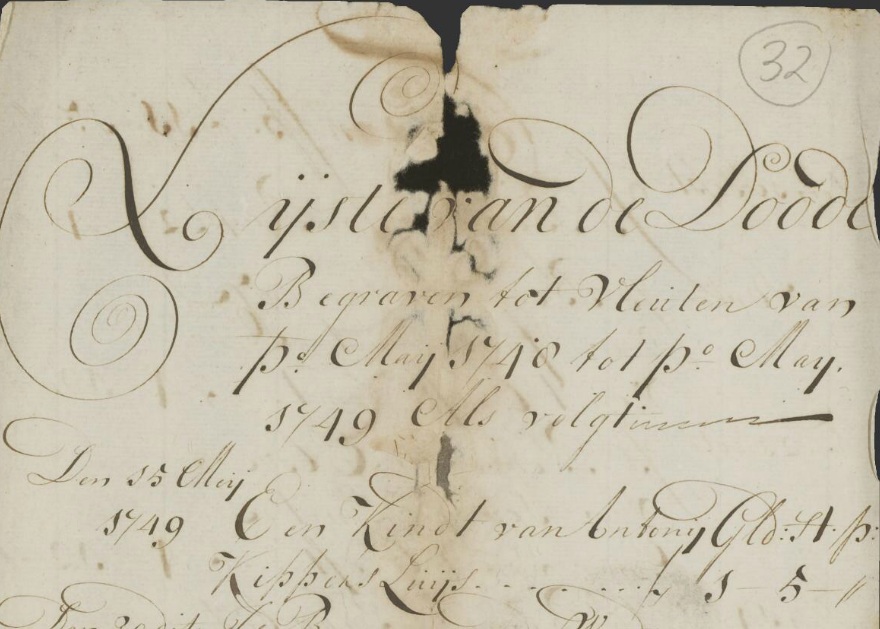 32
Lijste van de Doode
Begraven tot Vleuten van
po. Maij 1748 tot po. May.
1749 Als volgt
Den 15 Meij
1749 Een Kindt van Antonij Gld: St. p:
Kippersluijs 1 - 5 - "